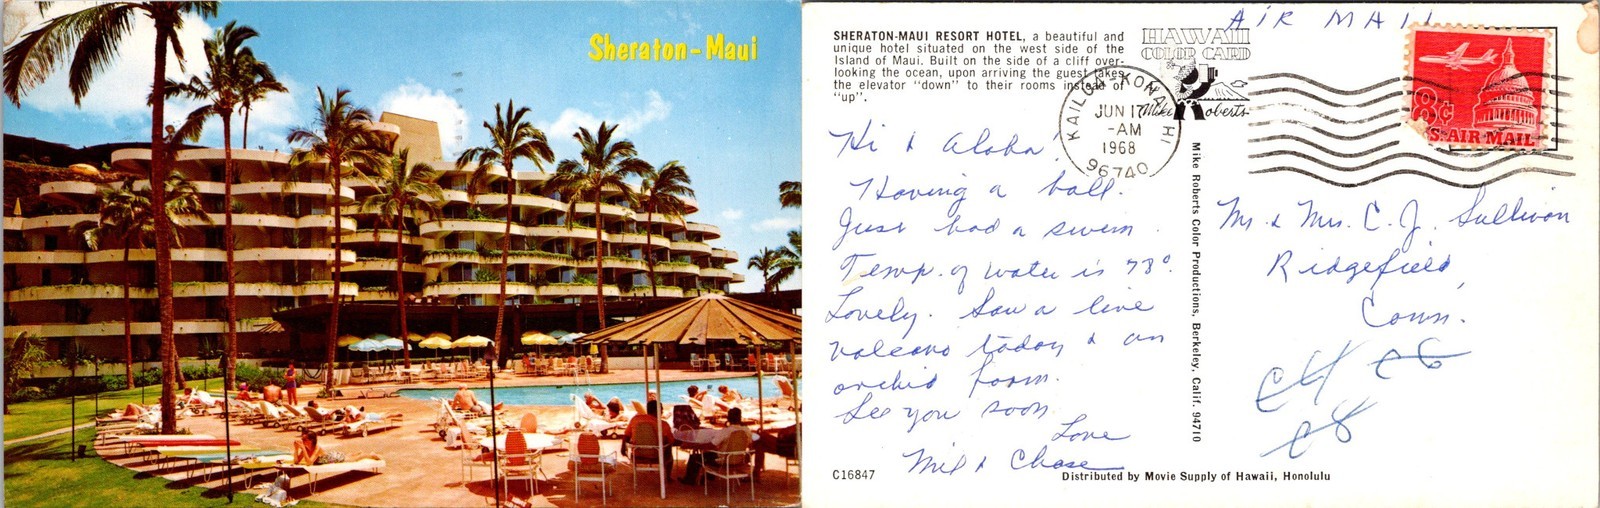 Sheraton-Maui
SHERATON-MAUI RESORT HOTEL, a beautiful and
unique hotel situated on the west side of the
Island of Maui. Built on the side of a cliff over-
looking the ocean, upon arriving the guest takes
the elevator "down" to their rooms instead of
"up".
HAWAII
COLOR CARD
Mike Roberts
KAILUA-KONA HI
JUN 17
-AM
1968
96740
AIR MAIL
8¢
US AIR MAIL
Hi & Aloha!
Having a ball.
Just had a swim.
Temp. of water is 78°.
Lovely. Saw a live
volcano today & an
orchid farm.
See you soon
Love
Mil & Chase
Mr & Mrs. C. J. Sullivan
Ridgefield,
Conn.
Mike Roberts Color Productions, Berkeley, Calif. 94710
C16847
Distributed by Movie Supply of Hawaii, Honolulu